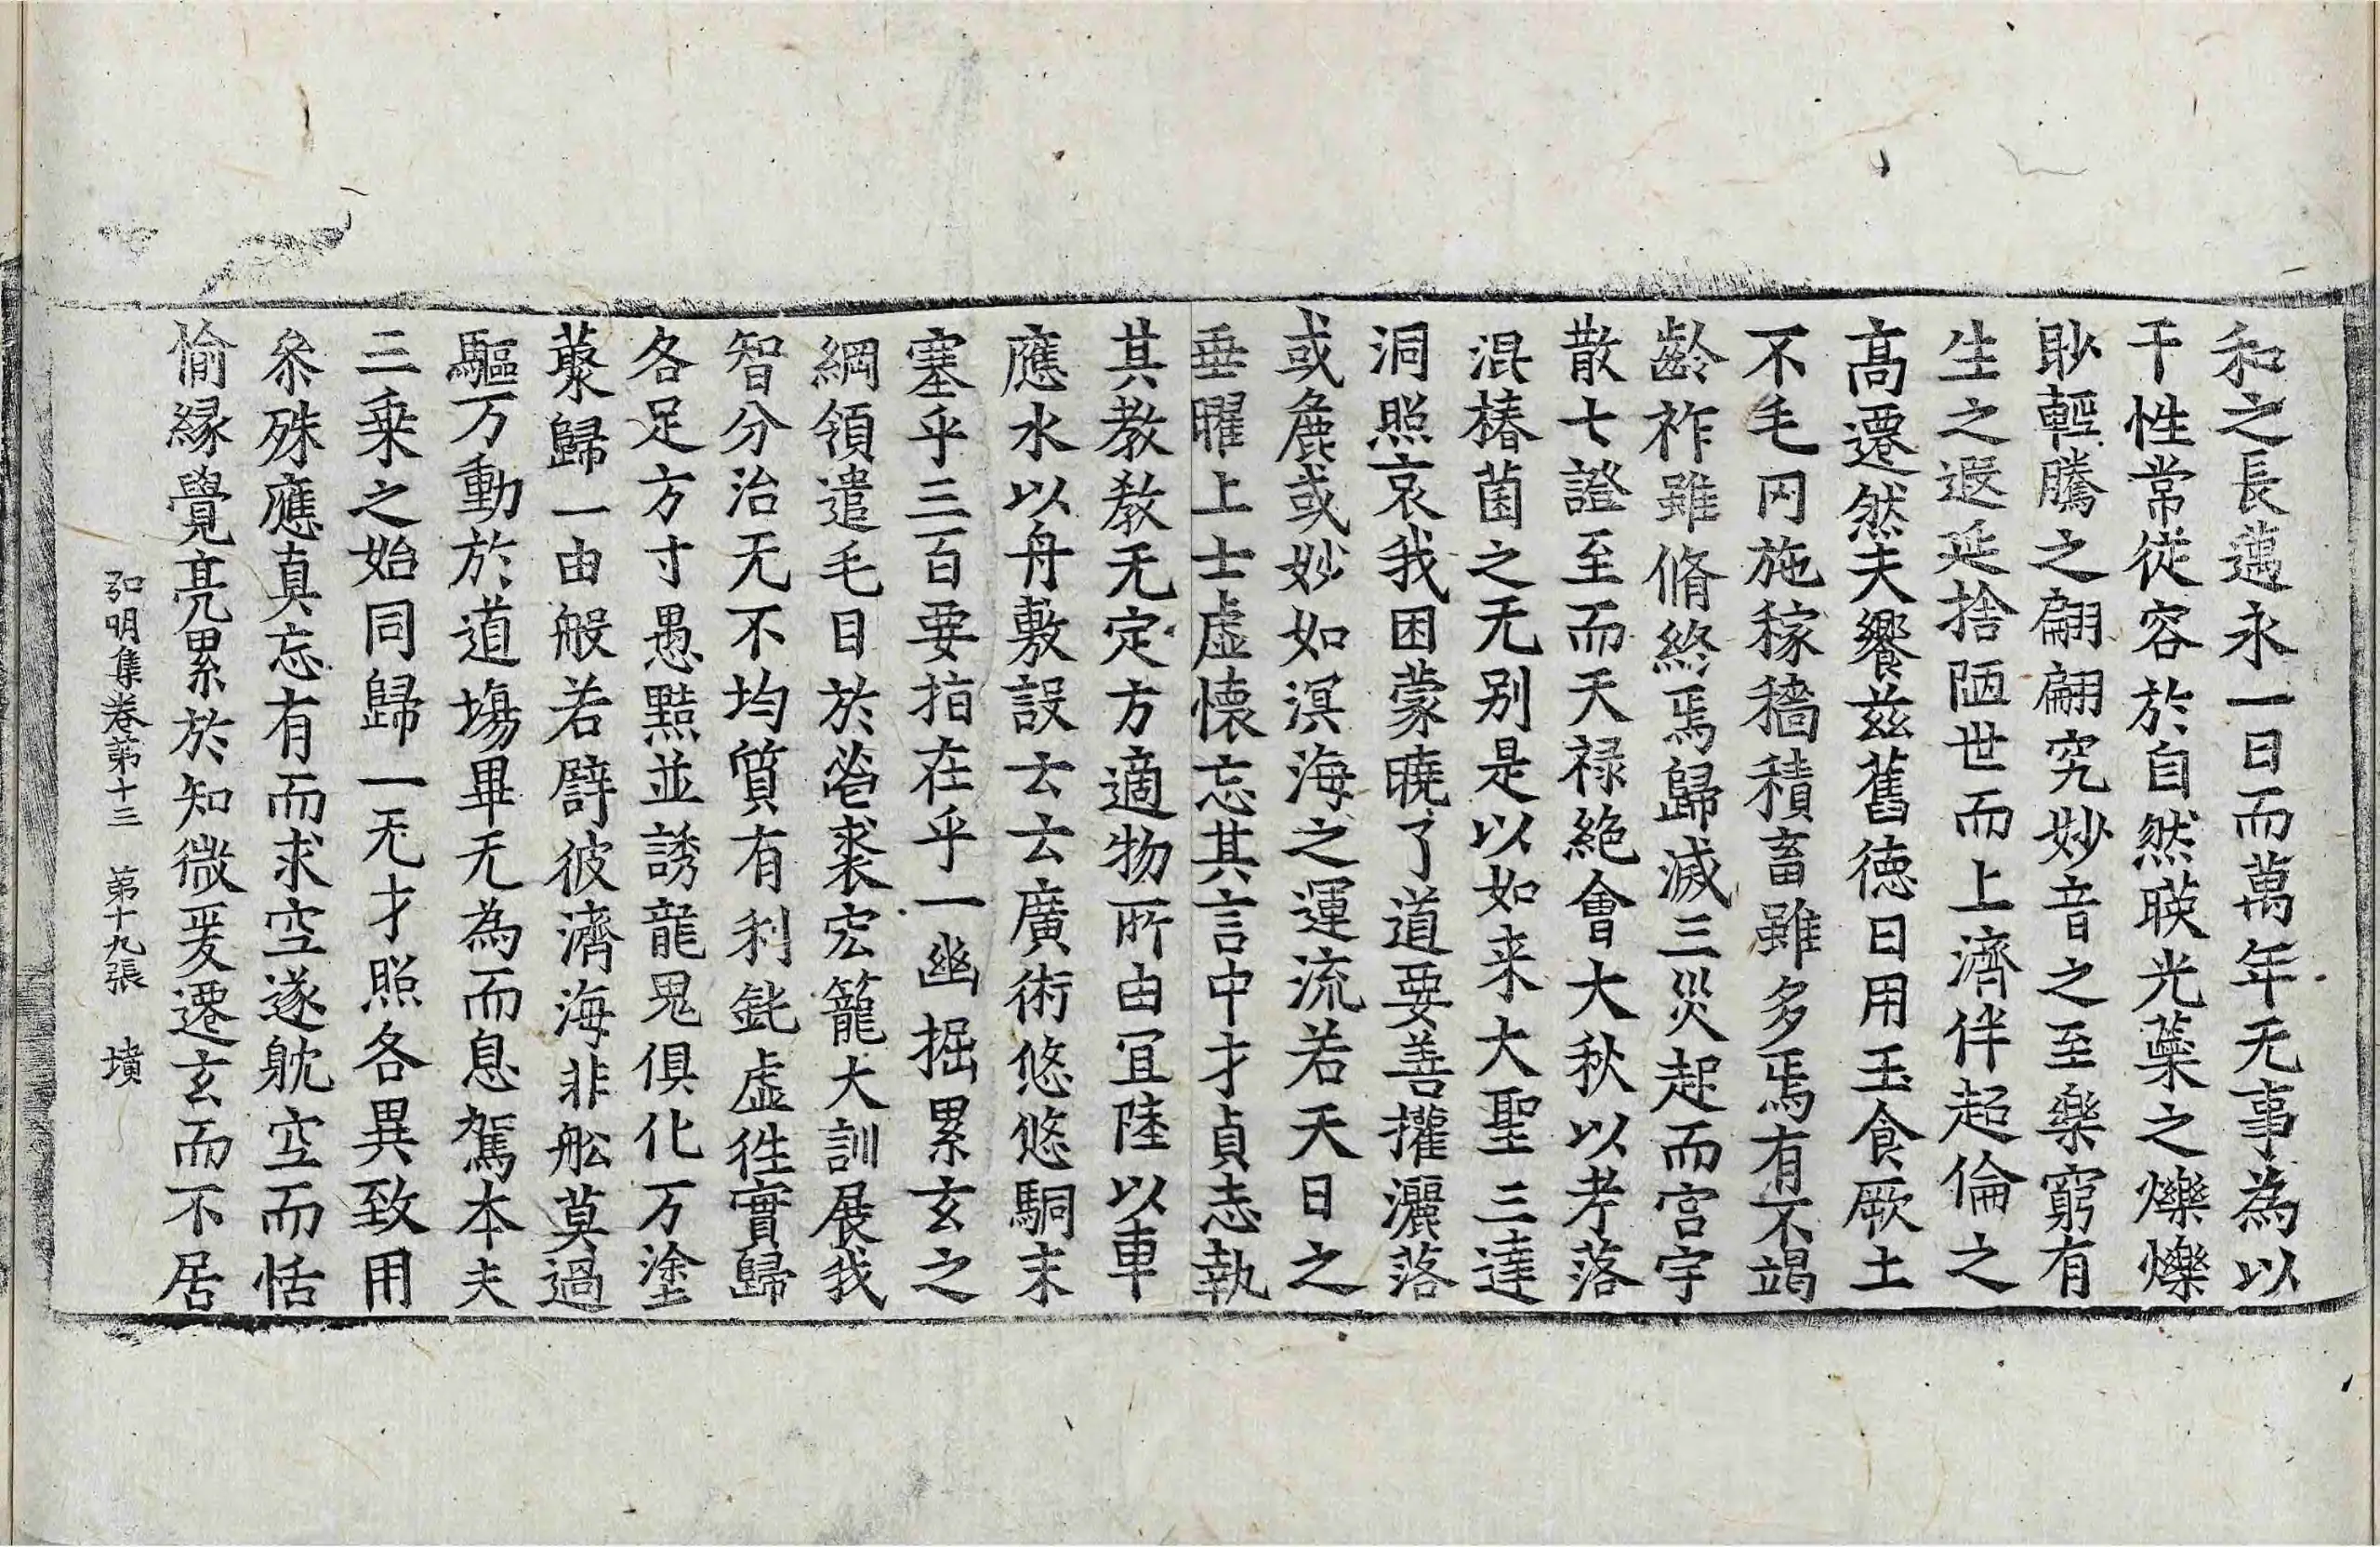 和之長邁永一日而萬年无事為以
干性常従容於自然䁐光蘂之爍爍
眇輕騰之翩翩究妙音之至樂窮有
生之遐延捨陋世而上濟伴超倫之
髙遷然夫饗兹舊徳日用玉食厥土
不毛冈施稼穡積畜雖多焉有不竭
齡祚雖脩終焉歸滅三災起而宫宇
散七證至而天禄絶會大秋以考落
混椿菌之无别是以如来大聖三達
洞照哀我困蒙曉了道要善㩲灑落
或麁或妙如溟海之運流若天日之
垂曜上士虚懐忘其言中才貞志執
其教教无定方適物所由冝陸以車
應水以舟敷設云云廣術悠悠駧末
塞乎三百要指在乎一幽掘累玄之
綱領遣毛目於㳟裘宏籠大訓展我
智分治无不均質有利鈋虚徃實歸
各足方寸愚黠並誘龍鬼俱化万塗
藂歸一由般若譬彼濟海非舩莫過
驅万動於道塲畢无為而息駕本夫
三乗之始同歸一无才照各異致用
叅殊應真忘有而求空遂躭空而恬
愉縁覺亮累於知微爰遷玄而不居
弘明集卷第十三　第十九張　墳